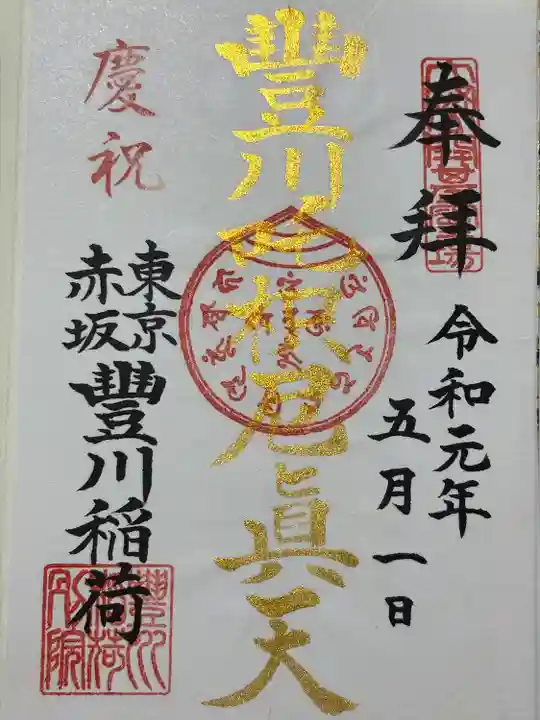 奉拝
令和元年
五月一日
豐川吒枳尼眞天
慶祝
東京
赤坂
豐川稲荷